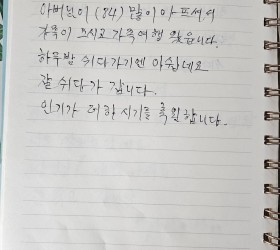 아버님이 (84) 많이 아프셔서
가족이 모시고 가족여행 왔읍니다.
하루밤 쉬다가기엔 아쉽네요
잘 쉬다가 갑니다.
인기가 더하시기를 축원합니다.